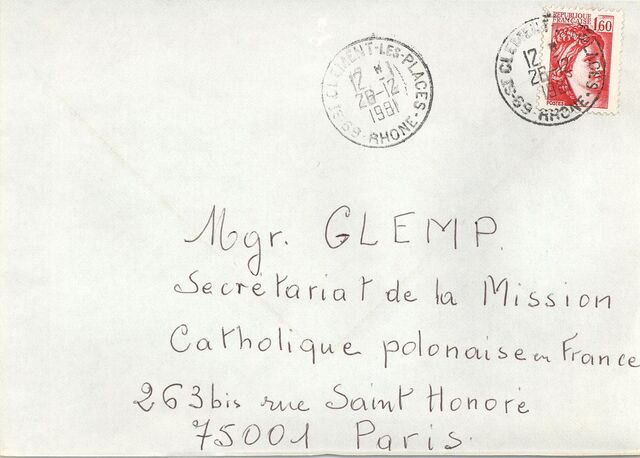 ST CLEMENT-LES-PLACES
12 H
28-12
1981
69-RHONE
REPUBLIQUE
FRANÇAISE
1,60
POSTES
ST CLEMENT-LES-PLACES
12 H
28-12
1981
69-RHONE
Mgr. GLEMP.
Secrétariat de la Mission
Catholique polonaise en France
263bis rue Saint Honoré
75001 Paris.